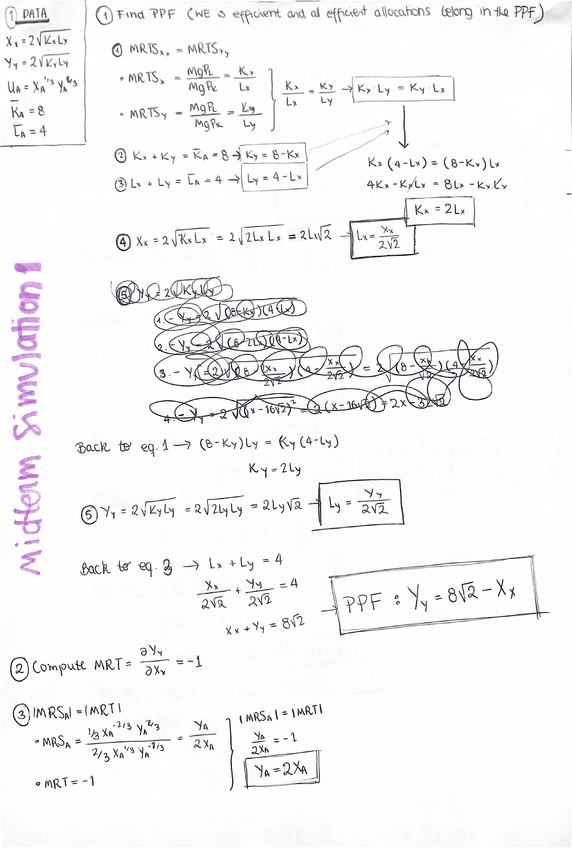 ① DATA
Xx = 2√KxLx
Yy = 2√KyLy
UA = XA^1/3 YA^2/3
K̄A = 8
L̄A = 4
Midterm Simulation 1
① Find PPF (WE is efficient and al efficient allocations belong in the PPF)
① MRTSx,y = MRTSy,y
• MRTSx = MgPL/MgPK = Kx/Lx
• MRTSy = MgPL/MgPK = Ky/Ly
Kx/Lx = Ky/Ly → Kx·Ly = Ky·Lx
② Kx + Ky = K̄A = 8 → Ky = 8-Kx
③ Lx + Ly = L̄A = 4 → Ly = 4-Lx
Kx (4-Lx) = (8-Kx) Lx
4Kx - KxLx = 8Lx - KxLx
Kx = 2Lx
④ Xx = 2√KxLx = 2√2LxLx = 2Lx√2 → Lx = Xx/2√2
Back to eq. 1 → (8-Ky)Ly = Ky (4-Ly)
Ky = 2Ly
⑤ Yy = 2√KyLy = 2√2LyLy = 2Ly√2 → Ly = Yy/2√2
Back to eq. 3 → Lx + Ly = 4
Xx/2√2 + Yy/2√2 = 4
Xx + Yy = 8√2
→ PPF : Yy = 8√2 - Xx
② Compute MRT = ∂Yy/∂Xx = -1
③ |MRSA| = |MRT|
• MRSA = 1/3 XA^-2/3 YA^2/3 / 2/3 XA^1/3 YA^-1/3 = YA/2XA
• MRT = -1
|MRSA| = |MRT|
YA/2XA = -1
YA = 2XA